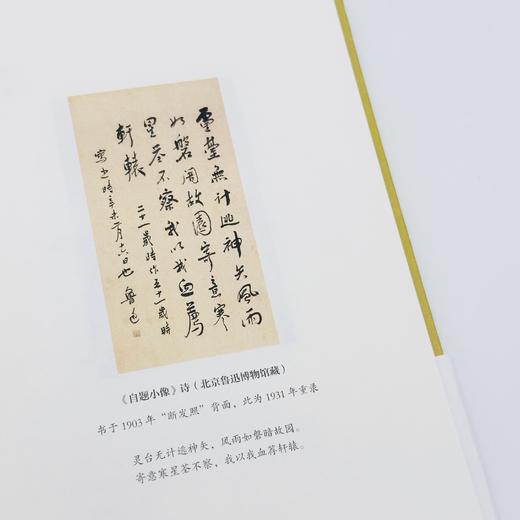 靈臺無計逃神矢風雨
如磐闇故園寄意寒
星荃不察我以我血薦
軒轅
二十一歲時作五十一歲時
寫之時辛未二月十六日也 魯迅
《自题小像》诗（北京鲁迅博物馆藏）
书于1903年“断发照”背面，此为1931年重录
灵台无计逃神矢，风雨如磐暗故园。
寄意寒星荃不察，我以我血荐轩辕。